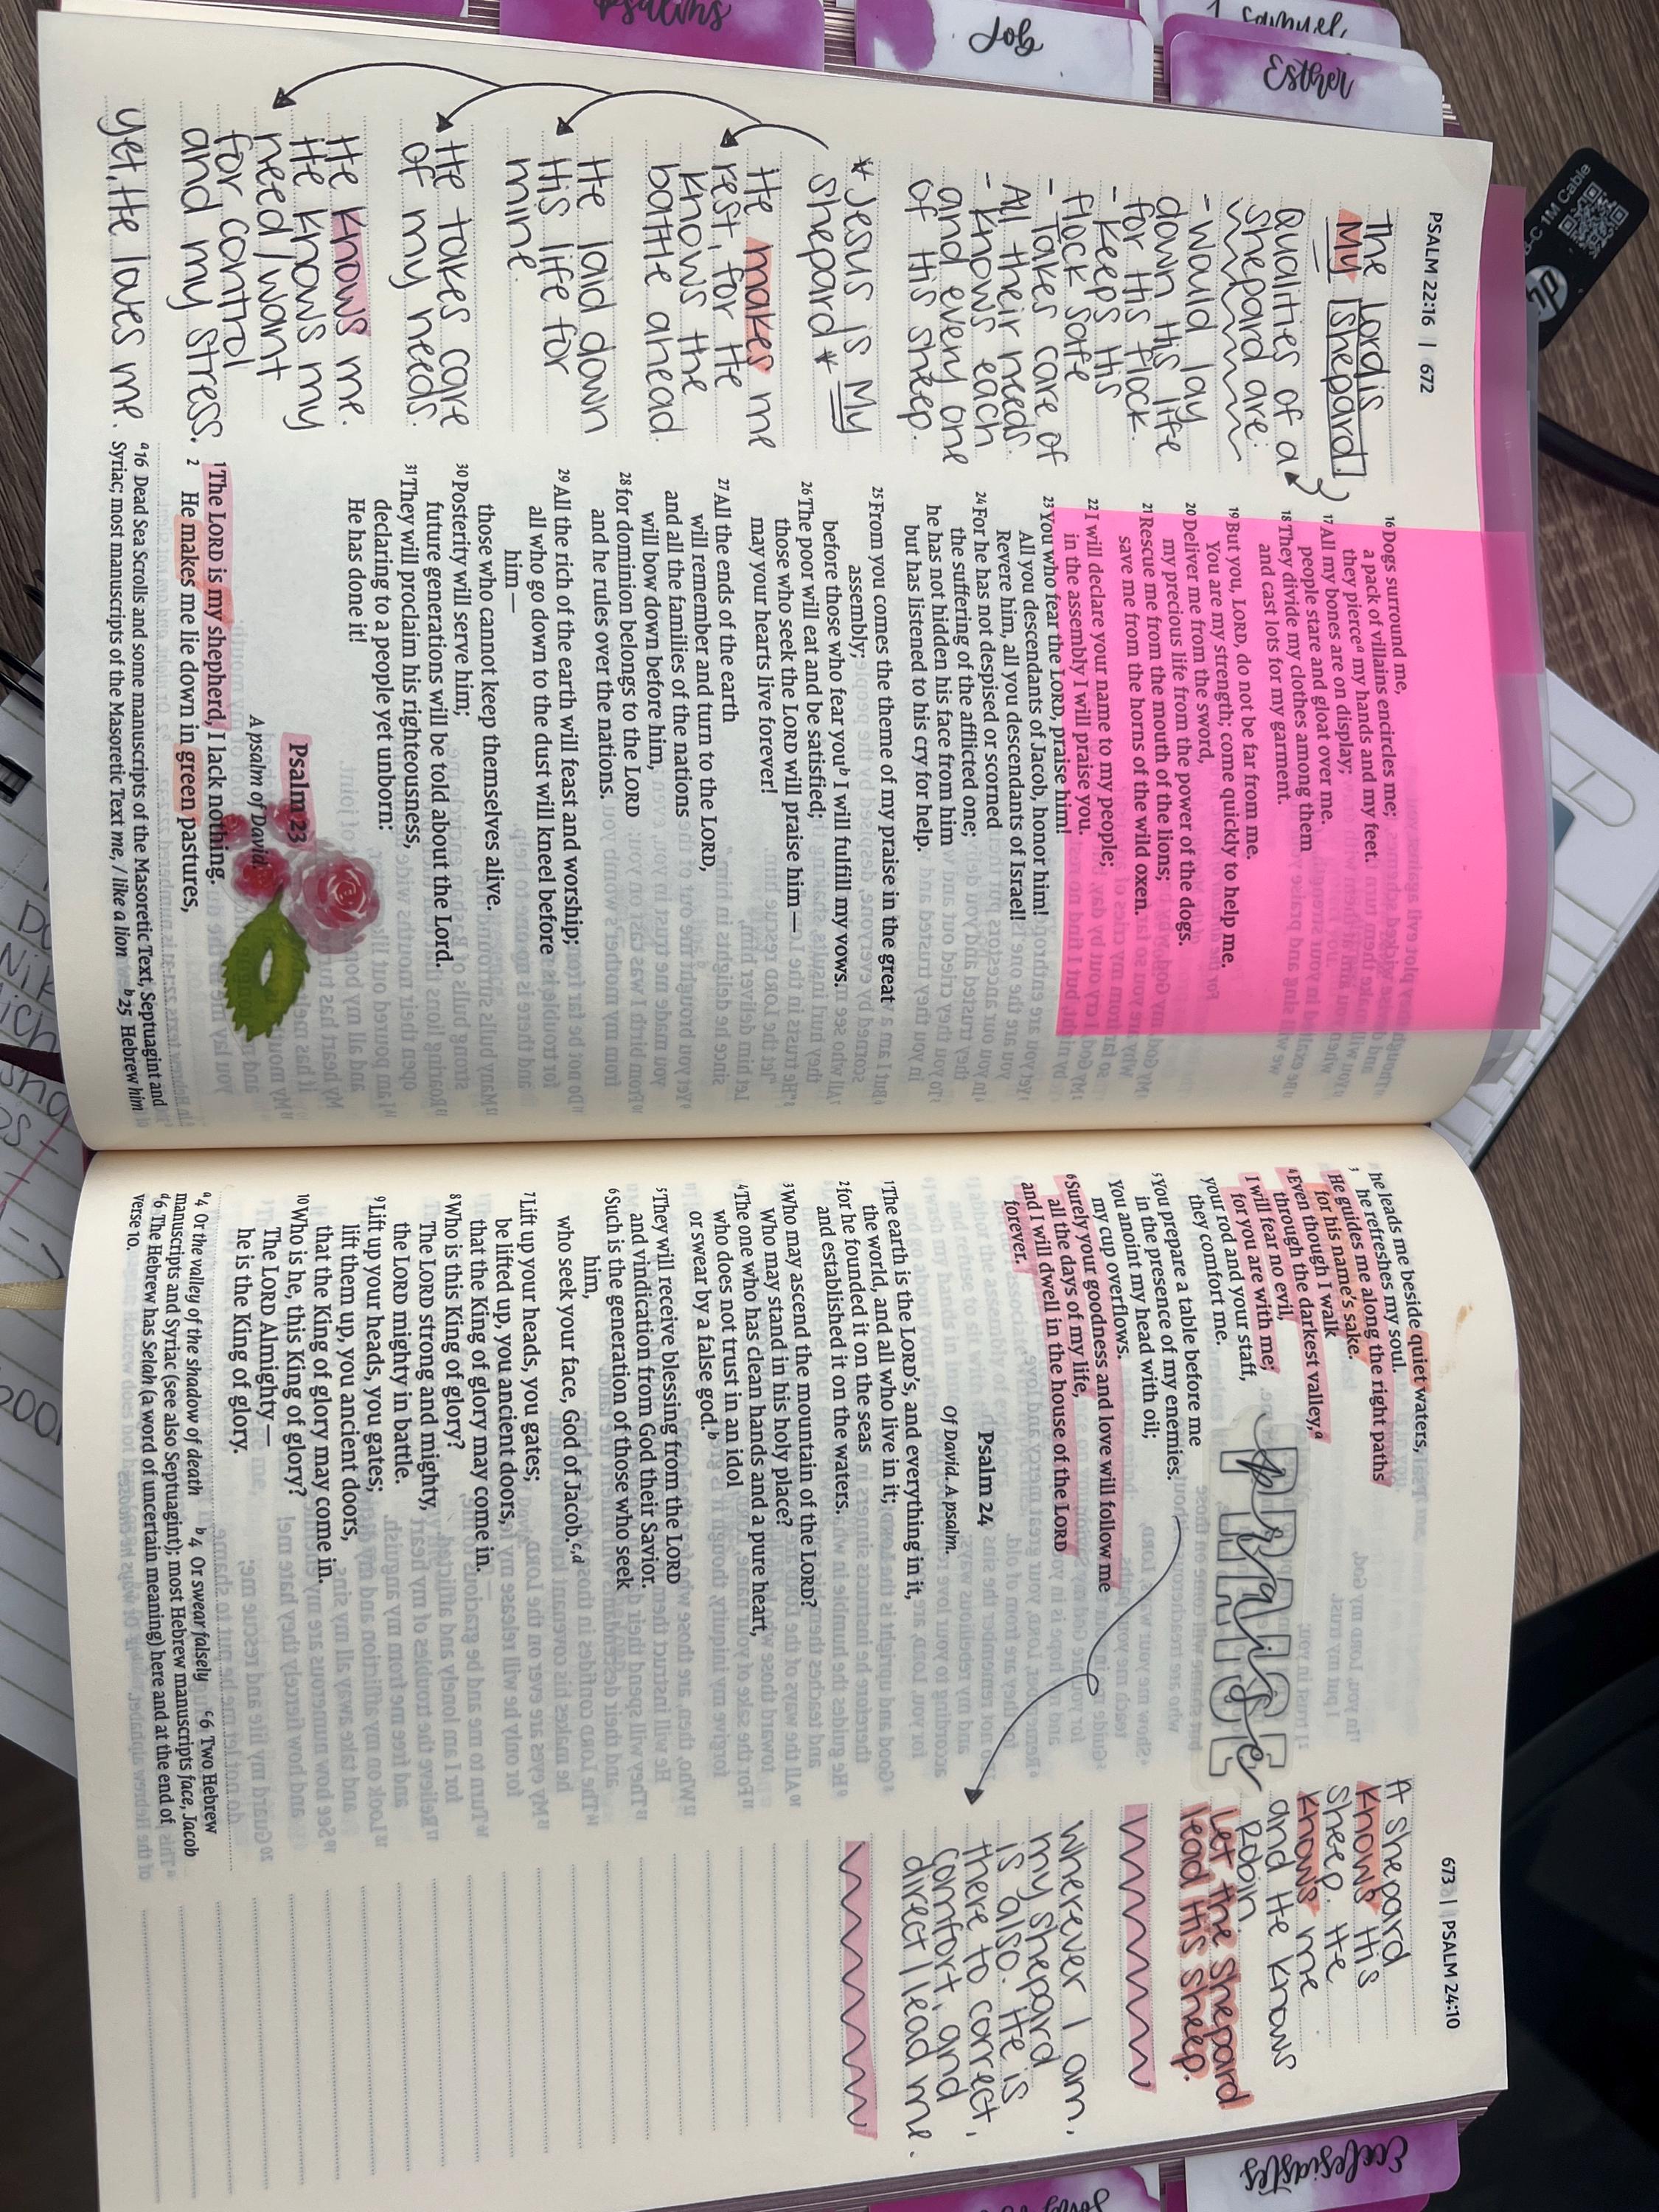 Psalms
Job
1 Samuel
Esther
-C 1M Cable
hp
PSALM 22:16 | 672
The Lord is
My shepard
Qualities of a
shepard are:
- Would lay
down His life
for His flock.
- Keeps His
flock safe
- Takes care of
All their needs.
- Knows each
and every one
of His sheep.
*Jesus is My
shepard*
He makes me
rest, for He
knows the
battle ahead.
He laid down
His life for
mine.
He takes care
of my needs.
He knows me.
He knows my
need/want
for control
and my stress.
Yet, He loves me.
16 Dogs surround me,
a pack of villains encircles me;
they pierce a my hands and my feet.
17 All my bones are on display;
people stare and gloat over me.
18 They divide my clothes among them
and cast lots for my garment.
19 But you, LORD, do not be far from me.
You are my strength; come quickly to help me.
20 Deliver me from the sword,
my precious life from the power of the dogs.
21 Rescue me from the mouth of the lions;
save me from the horns of the wild oxen.
22 I will declare your name to my people;
in the assembly I will praise you.
23 You who fear the LORD, praise him!
All you descendants of Jacob, honor him!
Revere him, all you descendants of Israel!
24 For he has not despised or scorned
the suffering of the afflicted one;
he has not hidden his face from him
but has listened to his cry for help.
25 From you comes the theme of my praise in the great
assembly;
before those who fear you b I will fulfill my vows.
26 The poor will eat and be satisfied;
those who seek the LORD will praise him—
may your hearts live forever!
27 All the ends of the earth
will remember and turn to the LORD,
and all the families of the nations
will bow down before him,
28 for dominion belongs to the LORD
and he rules over the nations.
29 All the rich of the earth will feast and worship;
all who go down to the dust will kneel before
him—
those who cannot keep themselves alive.
30 Posterity will serve him;
future generations will be told about the Lord.
31 They will proclaim his righteousness,
declaring to a people yet unborn:
He has done it!
Psalm 23
A psalm of David.
1 The LORD is my shepherd, I lack nothing.
2 He makes me lie down in green pastures,
a 16 Dead Sea Scrolls and some manuscripts of the Masoretic Text, Septuagint and
Syriac; most manuscripts of the Masoretic Text me, / like a lion b 25 Hebrew him
673 | PSALM 24:10
he leads me beside quiet waters,
3 he refreshes my soul.
He guides me along the right paths
for his name's sake.
4 Even though I walk
through the darkest valley, a
I will fear no evil,
for you are with me;
your rod and your staff,
they comfort me.
5 You prepare a table before me
in the presence of my enemies.
You anoint my head with oil;
my cup overflows.
6 Surely your goodness and love will follow me
all the days of my life,
and I will dwell in the house of the LORD
forever.
PRAISE
praise
Psalm 24
Of David. A psalm.
1 The earth is the LORD's, and everything in it,
the world, and all who live in it;
2 for he founded it on the seas
and established it on the waters.
3 Who may ascend the mountain of the LORD?
Who may stand in his holy place?
4 The one who has clean hands and a pure heart,
who does not trust in an idol
or swear by a false god. b
5 They will receive blessing from the LORD
and vindication from God their Savior.
6 Such is the generation of those who seek
him,
who seek your face, God of Jacob. c,d
7 Lift up your heads, you gates;
be lifted up, you ancient doors,
that the King of glory may come in.
8 Who is this King of glory?
The LORD strong and mighty,
the LORD mighty in battle.
9 Lift up your heads, you gates;
lift them up, you ancient doors,
that the King of glory may come in.
10 Who is he, this King of glory?
The LORD Almighty—
he is the King of glory.
a 4 Or the valley of the shadow of death b 4 Or swear falsely c 6 Two Hebrew
manuscripts and Syriac (see also Septuagint); most Hebrew manuscripts face, Jacob
d 6 The Hebrew has Selah (a word of uncertain meaning) here and at the end of
verse 10.
A shepard
knows His
sheep. He
knows me
and He knows
Robin.
Let the shepard
lead His sheep.
Wherever I am,
my shepard
is also. He is
there to correct,
comfort, and
direct/lead me.
Ecclesiastes